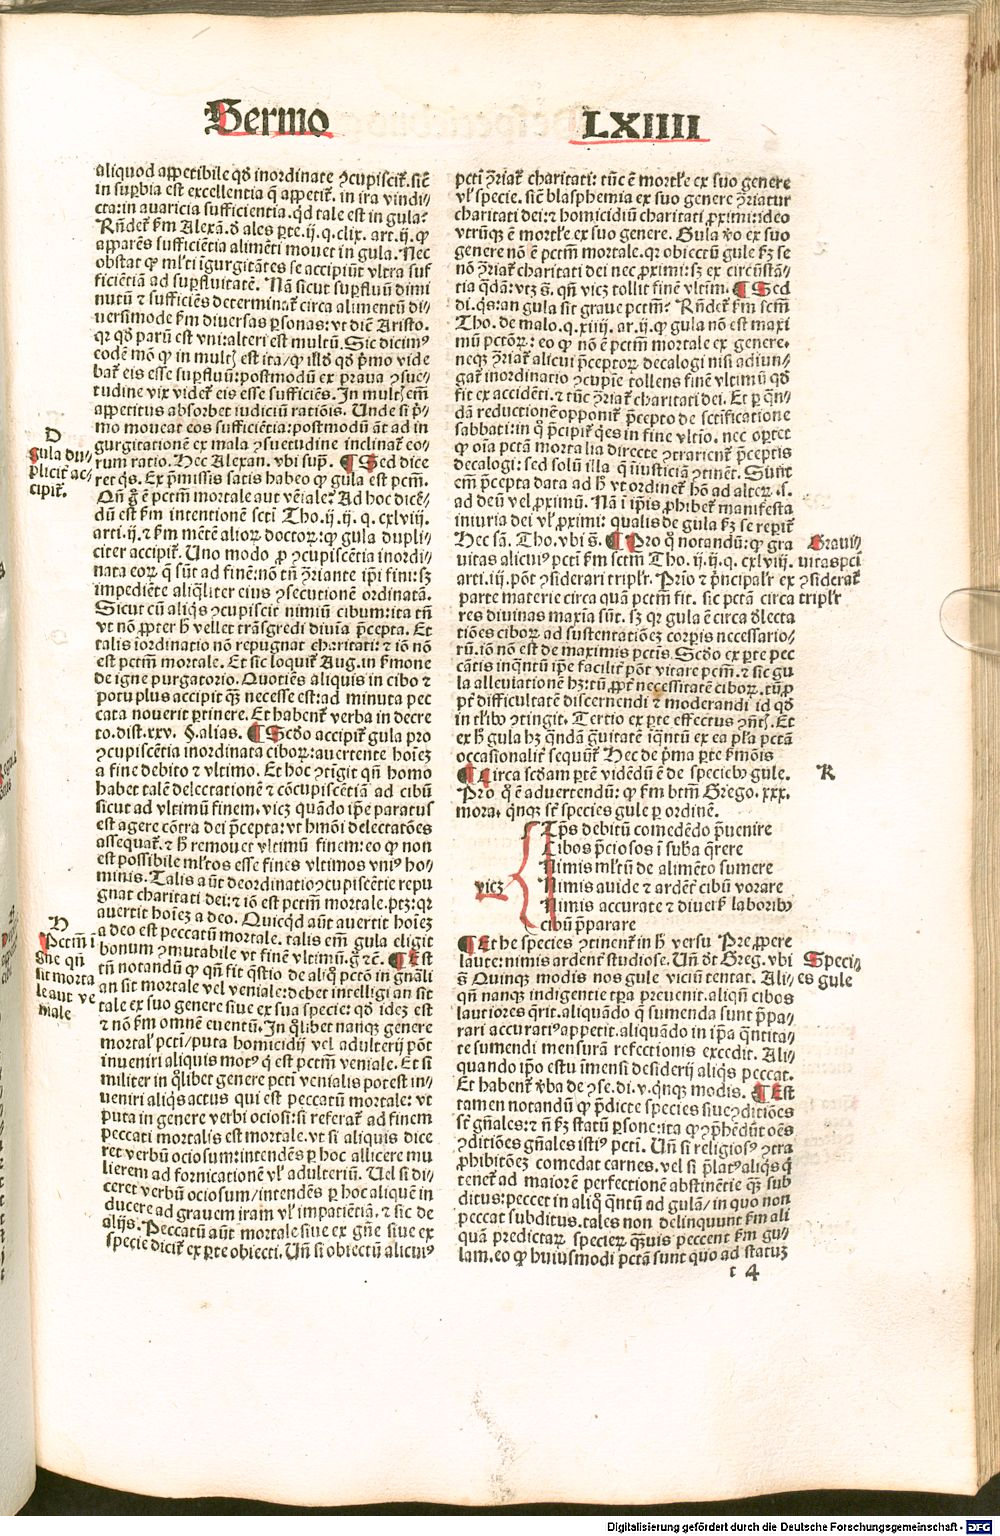 Sermo LXIIII
aliquod appetibile qđ inordinate ꝯcupiscit᷑. sic̄
in suꝑbia est excellentia q̄ appetit᷑. in ira vindi⸗
cta: in avaricia sufficientia. qđ tale est in gula?
Rn̄det᷑ ẜm Alexā. ð ales ꝑte. ij. q. clix. art. ij. ꝙ
apparēs sufficiētia alimēti mouet in gula. Nec
obstat ꝙ ml'ti īgurgitātes se accipiūt vltra suf
ficiētiā ad suꝑfluitatē. Nā sicut suꝑfluū dimi
nutū ⁊ sufficiēs determinat᷑ circa alimentū di⸗
uersimode ẜm diuersas ꝑsonas: vt dicit Aristo.
qꝛ qđ parū est vni: alteri est multū. Sic dicimꝰ
eodē mō ꝙ in multꝭ est ita / ꝙ illđ qđ p̄mo vide
bat᷑ eis esse suꝑfluū: postmodū ex praua ꝯsue⸗
tudine vix videt᷑ eis esse sufficiēs. In multꝭ em̄
appetitus absorbet iudiciū ratiōis. Unde si p̄⸗
mo moueat eos sufficiētia: postmodū āt ad in
gurgitationē ex mala ꝯsuetudine inclinat᷑ eo⸗
rum ratio. Hec Alexan. vbi sup̄. ¶ Sed dice
ret q̄s. Ex p̄missis satis habeo ꝙ gula est pctm̄.
Qn̄ g̊ ē pctm̄ mortale aut vēiale? Ad hoc dicē⸗
dū est ẜm intentionē scti Tho. ij. ij. q. cxlviij.
arti. ij. ⁊ ẜm mētē alioꝝ doctoꝝ: ꝙ gula dupli⸗
citer accipit᷑. Uno modo ꝓ ꝯcupiscētia inordi⸗
nata eoꝝ q̄ sūt ad finē: nō tn̄ ꝯ̄riante ip̄i fini: sꝫ
impediēte aliqͥliter eius ꝯsecutionē ordinatā.
Sicut cū aliqͥs ꝯcupiscit nimiū cibum: ita tn̄
vt nō ꝓpter h̄ vellet trāsgredi diuīa p̄cepta. Et
talis īordinatio nō repugnat charitati: ⁊ iō nō
est pctm̄ mortale. Et sic loquit᷑ Aug. in ẜmone
de igne purgatorio. Quotiēs aliquis in cibo ⁊
potu plus accipit qꝫ necesse est: ad minuta pec
cata nouerit ꝑtinere. Et habent᷑ verba in decre
to. dist. xxv. §. alias. ¶ Scđo accipit᷑ gula pro
ꝯcupiscētia inordinata ciboꝝ: auertente hoīeꝫ
a fine debito ⁊ vltimo. Et hoc ꝯtigit qn̄ homo
habet talē delectationē ⁊ cōcupiscētiā ad cibū
sicut ad vltimū finem. vicꝫ quādo ip̄e paratus
est agere cōtra dei p̄cepta: vt hmōi delectatōes
assequat᷑. ⁊ h̄ remouet vltimū finem: eo ꝙ non
est possibile ml'tos esse fines vltimos vniꝰ ho⸗
minis. Talis aūt deordinatio ꝯcupiscētie repu
gnat charitati dei: ⁊ iō est pctm̄ mortale. ptꝫ: qꝛ
auertit hoīeꝫ a deo. Quicqͥd aūt auertit hoīeꝫ
a deo est peccatū mortale. talis em̄ gula eligit
bonum ꝯmutabile vt finē vltimū. g̊ ⁊c. ¶ Est
tn̄ notandū ꝙ qn̄ fit q̄stio de aliqͦ pctō in gn̄ali
an sit mortale vel veniale: debet intelligi an sit
tale ex suo genere siue ex sua specie: qđ ideꝫ est
⁊ nō ẜm omnē euentū. In qͦlibet nanqꝫ genere
mortal' pcti / puta homicidij vel adulterij pōt
inueniri aliquis motꝰ q̄ est pctm̄ veniale. Et si
militer in qͦlibet genere pcti venialis potest in⸗
ueniri aliqͥs actus qui est peccatū mortale: vt
puta in genere verbi ociosi: si referat᷑ ad finem
peccati mortalis est mortale. vt si aliquis dice
ret verbū ociosum: intendēs ꝑ hoc allicere mu
lierem ad fornicationē vl' adulteriū. Uel si di⸗
ceret verbū ociosum / intendēs ꝑ hoc aliquē in
ducere ad grauem iram vl' impatiētiā. ⁊ sic de
alijs. Peccatū aūt mortale siue ex gn̄e siue ex
specie dicit᷑ ex ꝑte obiecti. Un̄ si obiectū alicuiꝰ
D
gula du⸗
plicit᷑ ac⸗
cipit᷑.
H
Pctm̄ ī
gn̄e qn̄
sit morta
le aut ve
niale
pcti ꝯ̄riat᷑ charitati: tūc ē mortl'e ex suo genere
vl' specie. sic̄ blasphemia ex suo genere ꝯ̄riatur
charitati dei: ⁊ homicidiū charitati ꝓximi: ideo
vtrūqꝫ ē mortl'e ex suo genere. Gula v̊o ex suo
genere nō ē pctm̄ mortale. qꝛ obiectū gule ẜꝫ se
nō ꝯ̄riat᷑ charitati dei nec ꝓximi: sꝫ ex circūstā⸗
tia q̄dā: vtꝫ s̄. qn̄ vicꝫ tollit finē vltim̄. ¶ Sed
di. q̄s: an gula sit graue pctm̄? Rn̄det᷑ ẜm sctm̄
Tho. de malo. q. xiiij. ar. ij. ꝙ gula nō est maxi
mū pctōꝝ: eo ꝙ nō ē pctm̄ mortale ex genere.
neqꝫ ꝯ̄riat᷑ alicui p̄ceptoꝝ decalogi nisi adiun⸗
gat᷑ inordinatio ꝯcupīe tollens finē vltimū qđ
fit ex accidēti. ⁊ tūc ꝯ̄riat᷑ charitati dei. Et ꝑ q̄n⸗
dā reductionē opponit᷑ p̄cepto de sctificatione
sabbati: in qͦ p̄cipit᷑ q̄es in fine vltīo. nec oꝑtet
ꝙ oīa pctā mortalia directe ꝯtrarient᷑ p̄ceptis
decalogi: sed solū illa q̄ iusticiā ꝯtinēt. Sunt
em̄ p̄cepta data ad h̄ vt ordinet᷑ hō ad alteꝝ. s.
ad deū vel ꝓximū. Nā ī ip̄is ꝓhibet᷑ manifesta
iniuria dei vl' ꝓximi: qualis de gula ẜꝫ se reꝑit᷑
Hec sā. Tho. vbi s̄. ¶ Pro qͦ notandū: ꝙ gra
uitas alicuiꝰ pcti ẜm sctm̄ Tho. ij. ij. q. cxlviij.
arti. iij. pōt ꝯsiderari tripl'r. Prīo ⁊ p̄ncipal'r ex
parte materie circa quā pctm̄ fit. sic pctā circa
res diuinas maxīa sūt. sꝫ qꝛ gula ē circa ðlecta
tiōes ciboꝝ ad sustentatiōeꝫ corꝑis necessario⸗
rū. iō nō est de maximis pctīs. Scđo ex ꝑte pec
cātis inqͣntū ip̄e facilit᷑ pōt vitare pctm̄. ⁊ sic gu
la alleuiationē hꝫ: tū ꝓpt᷑ necessitatē ciboꝝ. tū ꝓ
pt᷑ difficultatē discernendi ⁊ moderandi id qđ
in tl'ibꝰ ꝯtingit. Tertio ex ꝑte effectus ꝯn̄tꝭ. Et
ex h̄ gula hꝫ qn̄dā g̊uitatē īqͣntū ex ea pl'a pctā
occasionalit᷑ sequūt᷑. Hec de p̄ma ꝑte ẜmōis
¶ Circa scđam ꝑtē vidēdū ē de speciebꝰ gule.
Pro qͦ ē aduertendū: ꝙ ẜm btm̄ Grego. xxx.
mora. qͥnqꝫ st̄ species gule ꝑ ordinē.
vicꝫ
Tp̄s debitū comedēdo p̄uenire
Cibos p̄ciosos ī suba q̄rere
Nimis ml'tū de alimēto sumere
Nimis auide ⁊ ardēt᷑ cibū vorare
Nimis accurate ⁊ diuersꝭ laboribꝰ
cibū p̄parare
¶ Et he species ꝯtinent᷑ in h̄ versu Pre, ꝓpere
laute: nimis ardent᷑ studiose. Un̄ đt Greg. vbi
s̄ Quinqꝫ modis nos gule viciū tentat. Ali⸗
qn̄ nanqꝫ indigentie tp̄ra preuenit. aliqn̄ cibos
lautiores q̄rit. aliquādo q̄ sumenda sunt p̄pa⸗
rari accuratiꝰ appetit. aliquādo in ip̄a qͣntita⸗
te sumendi mensurā refectionis excedit. Ali⸗
quando ip̄o estu īmensi desiderij aliqͥs peccat.
Et habent᷑ v̄ba de ꝯse. di. v. qͥnqꝫ modis. ¶ Est
tamen notandū ꝙ p̄dicte species siue ꝯditiōes
st̄ gn̄ales: ⁊ n̄ ẜꝫ statū ꝑsone: ita ꝙ ꝯp̄hēdūt oēs
ꝯditiōes gn̄ales istiꝰ pcti. Un̄ si religiosꝰ ꝯtra
ꝓhibitōeꝫ comedat carnes. vel si p̄latꝰ aliqͥs q̄
tenet᷑ ad maiorē perfectionē abstinētie qꝫ sub
ditus: peccet in aliqͦ qͣntū ad gulā / in quo non
peccat subditus. tales non delinquunt ẜm ali
quā predictaꝝ specieꝝ qꝫuis peccent ẜm gu⸗
lam. eo ꝙ huiusmodi pctā sunt quo ad statuꝫ
t 4
Graui⸗
uitas pcī
ꝯsiderat᷑
tripl'r
K
Speci⸗
es gule
Digitalisierung gefördert durch die Deutsche Forschungsgemeinschaft - DFG